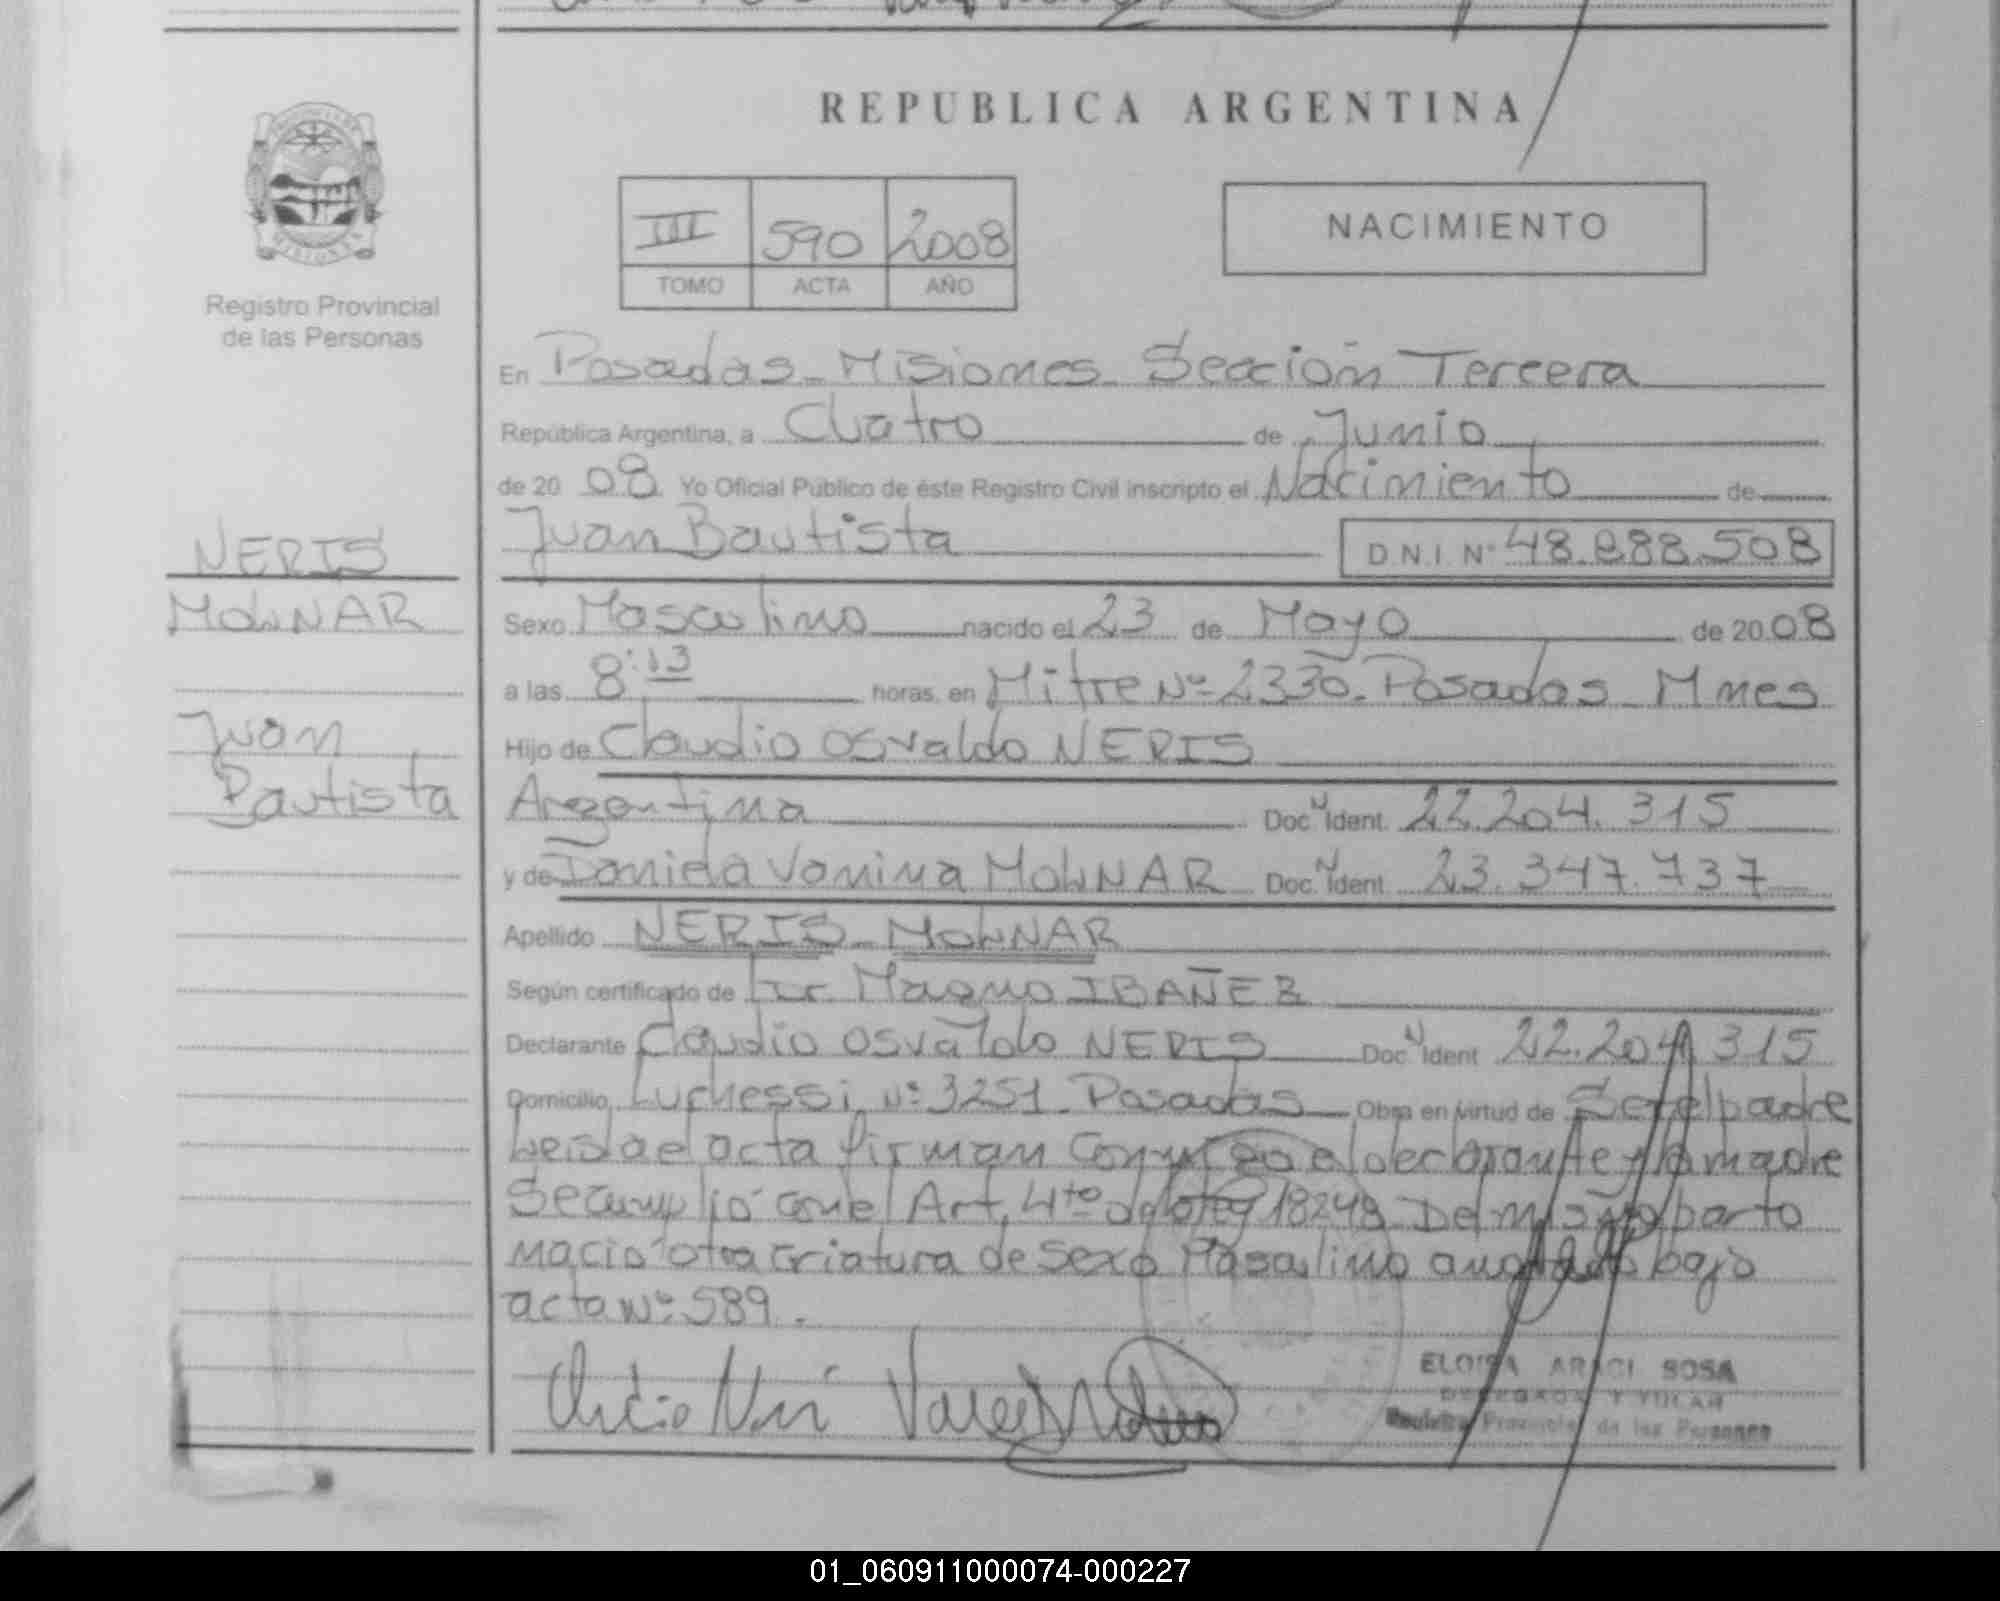 REPUBLICA ARGENTINA
III 590 2008
TOMO ACTA AÑO
NACIMIENTO
Registro Provincial
de las Personas
En Posadas - Misiones - Sección Tercera
República Argentina, a Cuatro de Junio
de 2008 Yo Oficial Público de éste Registro Civil inscripto el Nacimiento de
Juan Bautista D.N.I. Nº 48.888.508
NERIS
MOLINAR
Juan
Bautista
Sexo Masculino nacido el 23 de Mayo de 2008
a las 8:13 horas, en Mitre Nº 2330 - Posadas - Mnes
Hijo de Claudio Osvaldo NERIS
Argentina Doc N Ident. 22.204.315
y de Daniela Vanina MOLINAR Doc. N Ident. 23.347.737
Apellido NERIS - MOLINAR
Según certificado de Magno IBAÑEZ
Declarante Claudio Osvaldo NERIS Doc N Ident 22.204.315
Domicilio Luchessi Nº 3251 - Posadas Obra en virtud de Ser el padre
Leida el acta firman Conmigo el declarante y la madre
Se cumplió con el Art. 4to de la Ley 18248 - Del mismo parto
nació otra criatura de sexo Masculino anotado bajo
acta Nº 589.
ELOISA ARACI SOSA
DELEGADA TITULAR
Registro Provincial de las Personas
01_060911000074-000227